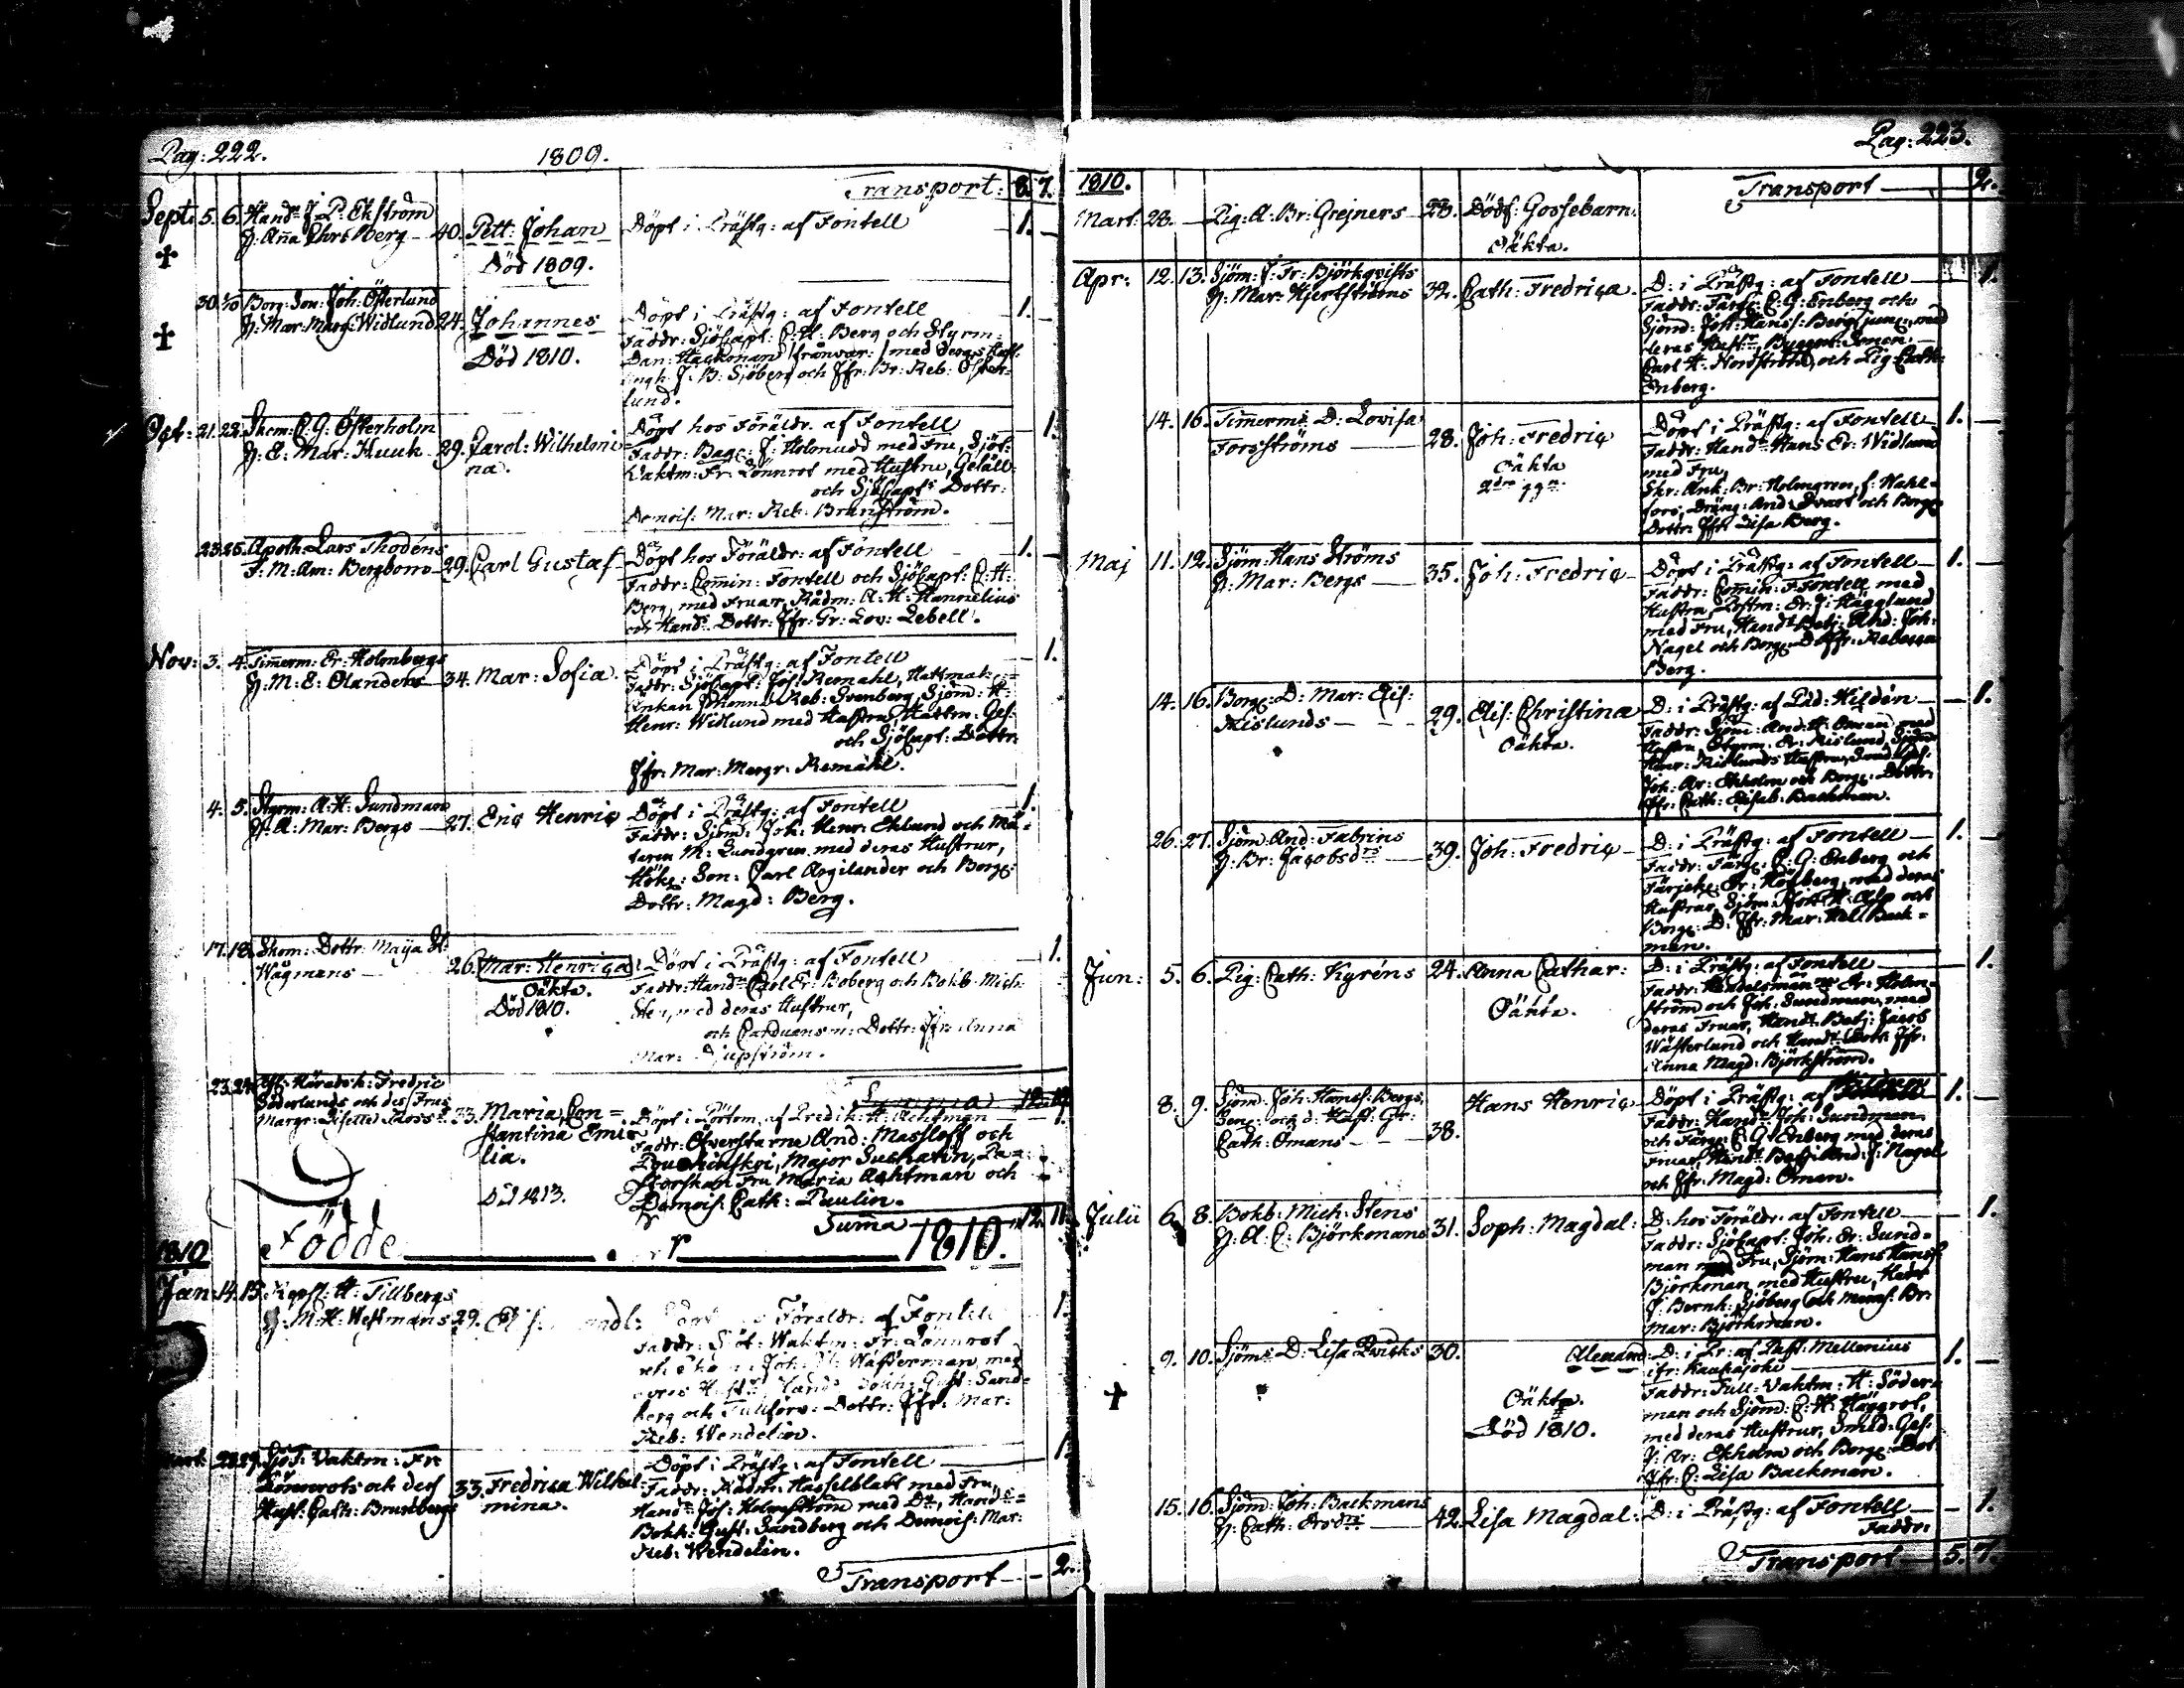 Pag: 222.
1809.
Transport: 8. 7.
Sept: 5. 6. Hand: J. P. Ekström
H: Anna Chr: Berg 40. Pett: Johan Döpt i Prästg: af Fontell 1.
Död 1809.
30. 1/10 Borg: Son: Joh: Österlund
H: Mar: Marg: Widlund 24. Johannes Döpt i Prästg: af Fontell 1.
Död 1810.
Faddr: Sjöcapt: C: H: Berg och Styrm:
Dan: Hackman frånvar: med deras Hust:
J: B: Sjöberg och Jfr: Br: Reb: Öster-
lund.
Oct: 21. 22. Skom: C: G: Österholm
H: E: Mar: Huuk 29. Carol: Wilhelmi-
na. Döpt hos Föräldr. af Fontell 1.
Faddr: Bag: J: Holmudd med Fru, Sjöt:
Vaktm: Fr: Lönnrot med Hustru, Gesäll:
och Sjöcapt: Dottr:
Demois: Mar: Reb: Branström.
23. 25. Apoth: Lars Thodéns
F: M: Am: Bergbom 29. Carl Gustaf Döpt hos Föräldr: af Fontell 1.
Faddr: Comin: Fontell och Sjöcapt: C: H:
Berg, med Fruar, Rådm: A: H: Hannelius
och Hand: Dottr: Jfr: Gr: Lov: Lebell.
Nov: 3. 4. Timmerm: Er: Holmbergs
H: M: E: Olanders 34. Mar: Sofia. Döpt i Prästg: af Fontell 1.
Faddr: Sjöcapt: Joh: Remahl, Hattmak:
Enkan Reb: Svenberg, Sjöm: H:
Henr: Widlund med Hustru, Hattm: Ges:
och Sjöcapt: Dottr:
Jfr: Mar: Margr: Remahl.
4. 5. Styrm: A: H: Sundmans
H: A: Mar: Bergs 27. Eric Henric Döpt i Prästg: af Fontell 1.
Faddr: Sjöm: Joh: Henr: Eklund och Må-
laren M: Lundgren med deras Hustrur,
Hök: Son: Carl Argilander och Borg:
Dottr: Magd: Berg.
17. 18. Skom: Dottr: Maija St:
Wägmans 26. Mar: Henrica Döpt i Prästg: af Fontell 1.
Oäkta.
Död 1810.
Faddr: Hand: Carl Er: Boberg och Bokb: Mich:
Sten, med deras Hustrur,
och Carduansm: Dottr: Jfr: Anna
Mar: Djupström.
Summa 12. 10.
23. 24. Häradsh: Fredric
Söderlunds och des Fru
Margr: Lisetta 33. Maria Con-
stantina Emi-
lia.
Död 1813.
Döpt i Pörtom, af Predik: H: Achtman 1.
Faddr: Öfverstarne And: Massloff och
Major Suchatin, Pa-
storskan Fru Maria Achtman och
Demois: Cath: Paulin.
Summa 12. 11.
Födde år 1810.
1810
Jan: 14. 15. H: Tillbergs
H: M: H: Westmans 29. Föräldr: af Fontell 1.
Faddr: Sjöt: Waktm: Fr: Lönnrot
och Joh: Wästerman, med
deras Hust: Hand: Bokh: Gust: Sand-
berg och Tullförv: Dottr: Jfr: Mar:
Reb: Wendelin.
Mart: 28. 29. Sjöt: Vaktm: Fr:
Lönnrots och des
Hust: Cath: Brunbergs 33. Fredrica Wilhel-
mina. Döpt i Prästg: af Fontell 1.
Faddr: Rådm: Hasselblatt med Fru,
Hand: Jos: Holmström med D:, Hand:
Bokh: Gust: Sandberg och Demois: Mar:
Reb: Wendelin.
Transport 2.
Pag: 223.
1810. Transport 2.
Mart: 28. Pig: A: Br: Grejners 23. Dödf: Gossebarn.
Oäkta.
Apr: 12. 13. Sjöm: J: Fr: Björkqvists
H: Mar: Hjertströms 32. Cath: Fredrica. D: i Prästg: af Fontell 1.
Faddr: Färg: C: G: Enberg och
Sjöm: Joh: Hanss: Berg jun:, med
deras Hust: Byggm: Sonen
Carl H: Nordström, och Pig: Cath:
Enberg.
14. 16. Timmerm: D: Lovisa
Forsströms 28. Joh: Fredric Döpt i Prästg: af Fontell 1.
Oäkta
2dra ggn.
Faddr: Hand: Hans Er: Widlund
med Fru,
Skr: Enk: Br: Holmgren, f: Wahl-
fors, Dräng: And: Svart och Borg:
Dottr: Jfr: Lisa Berg.
Maj 11. 12. Sjöm: Hans Ströms
H: Mar: Bergs 35. Joh: Fredric Döpt i Prästg: af Fontell 1.
Faddr: Comin: Fontell med
Hustru, Postm: Er: J: Hägglund
med Fru, Hand: Betj: And: Joh:
Nagel och Borg: D: Jfr: Rebecca
Berg.
14. 16. Borg: D: Mar: Elis:
Rislunds 29. Elis: Christina D: i Prästg: af Päd: Hildén 1.
Oäkta.
Faddr: Sjöm: And: H: Öman med
Hustru, Styrm: Er: Rislund, Sjöm:
Henr: Rislunds Hustru, Smed: Ges:
Joh: Ar: Ekholm och Borg: Dottr:
Jfr: Cath: Elisab: Backman.
26. 27. Sjöm: And: Fabrins
H: Br: Jacobsdrs 39. Joh: Fredric D: i Prästg: af Fontell 1.
Faddr: Färg: C: G: Enberg och
Färjek: Er: Högberg, med deras
Hustrur, Sjöm: Joh: H: Asp och
Borg: D: Jfr: Mar: Hel: Back-
man.
Jun: 5. 6. Pig: Cath: Kyréns 24. Anna Cathar: D: i Prästg: af Fontell 1.
Oäkta.
Faddr: Handelsmän: Er: Holm-
ström och Joh: Sundman, med
deras Fruar, Hand: Betj: Jacob
Wästerlund och Hand: Dottr: Jfr:
Anna Magd: Björkström.
8. 9. Sjöm: Joh: Hanss: Bergs,
Jun: och d: Hust: Gr:
Cath: Ömans 38. Hans Henric Döpt i Prästg: af Hildén 1.
Faddr: Hand: Joh: Sundman
och Färg: C: G: Enberg med deras
Fruar, Hand: Betj: And: J: Nagel
och Jfr: Magd: Öman.
Julii 6. 8. Bokb: Mich: Stens
H: A: C: Björkmans 31. Soph: Magdal: D: hos Föräldr: af Fontell 1.
Faddr: Sjöcapt: Joh: Er: Sund-
man med Fru, Sjöm: Hans Hanss:
Björkman, med Hustru, Herr
J: Bernh: Sjöberg och Mams: Br:
Mar: Björkman.
9. 10. Sjöms D: Lisa Qvicks 30. Alexand: D: i Pr: af Past: Mellenius
ifr: Kauhajoki 1.
Oäkta.
Död 1810.
Faddr: Tull: Vaktm: H: Söder-
man och Sjöm: C: H: Häggrot,
med deras Hustrur, Smed: Ges:
J: Ar: Ekholm och Borg: Dot:
Jfr: C: Lisa Backman.
15. 16. Sjöm: Joh: Backmans
H: Cath: Ersdrs 42. Lisa Magdal: D: i Prästg: af Fontell 1.
Faddr:
Transport 5. 7.